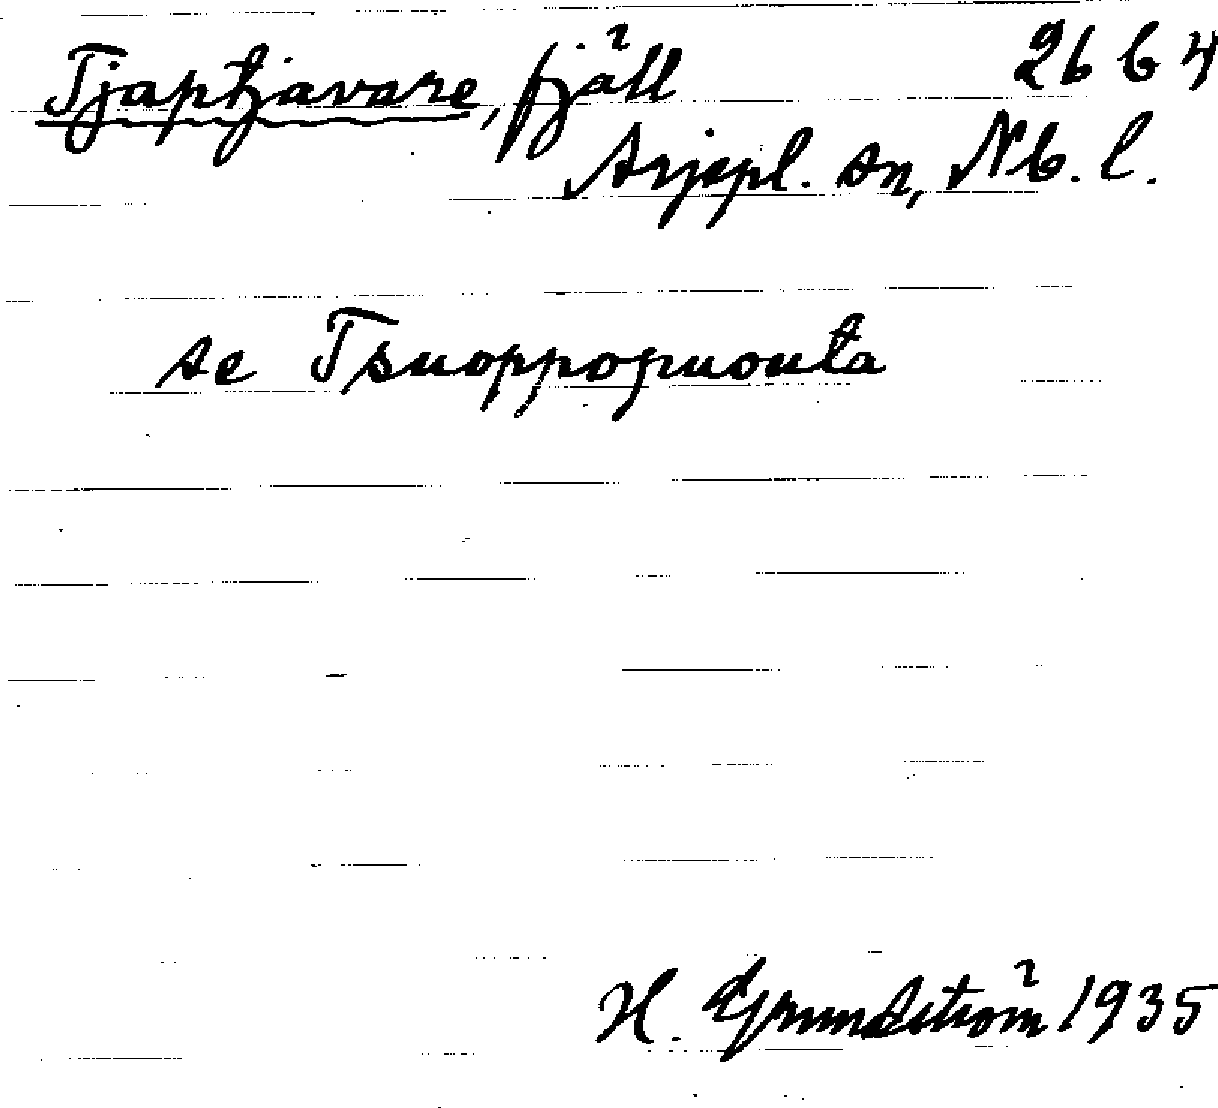 Tjaptjavare, fjäll 26 b 4
Arjepl. sn, Nb. l.
se Tsuoppogruouta
H. Grundström 1935